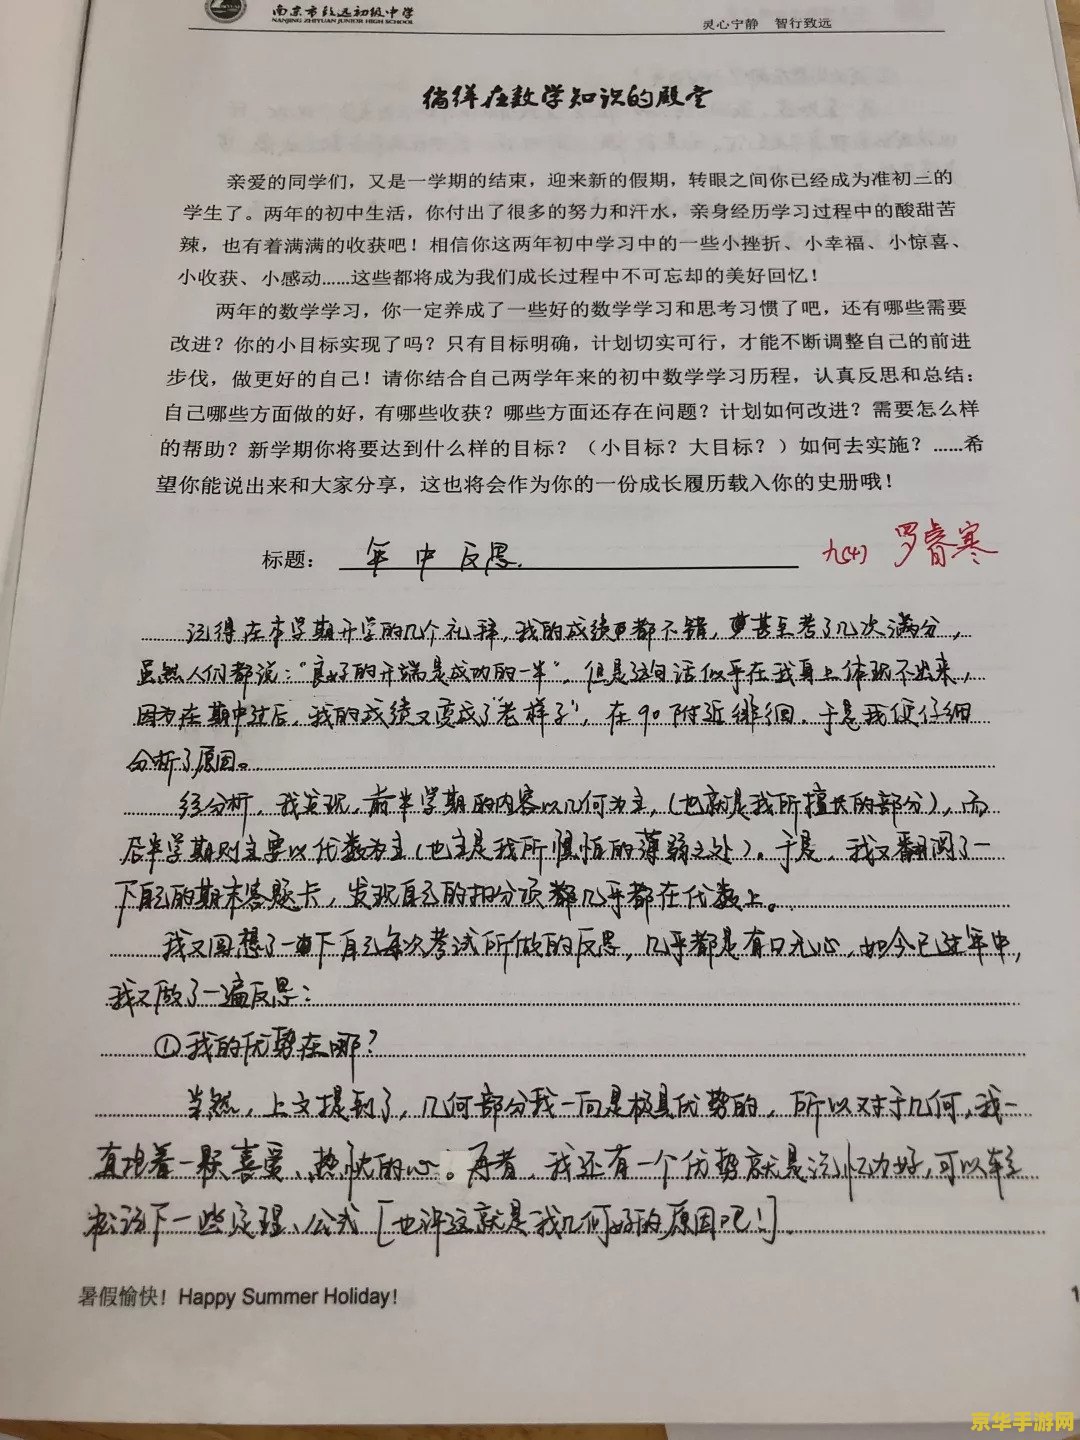 南京市致远初级中学
NANJING ZHIYUAN JUNIOR HIGH SCHOOL
灵心宁静 智行致远
徜徉在数学知识的殿堂
亲爱的同学们，又是一学期的结束，迎来新的假期，转眼之间你已经成为准初三的
学生了。两年的初中生活，你付出了很多的努力和汗水，亲身经历学习过程中的酸甜苦
辣，也有着满满的收获吧！相信你这两年初中学习中的一些小挫折、小幸福、小惊喜、
小收获、小感动……这些都将成为我们成长过程中不可忘却的美好回忆！
两年的数学学习，你一定养成了一些好的数学学习和思考习惯了吧，还有哪些需要
改进？你的小目标实现了吗？只有目标明确，计划切实可行，才能不断调整自己的前进
步伐，做更好的自己！请你结合自己两学年来的初中数学学习历程，认真反思和总结：
自己哪些方面做的好，有哪些收获？哪些方面还存在问题？计划如何改进？需要怎么样
的帮助？新学期你将要达到什么样的目标？（小目标？大目标？）如何去实施？……希
望你能说出来和大家分享，这也将会作为你的一份成长履历载入你的史册哦！
标题： 年中反思.
九(4) 罗睿寒
记得在本学期开学的几个礼拜，我的成绩都不错，甚至考了几次满分，
虽然人们都说：“良好的开端是成功的一半”，但是这句话似乎在我身上体现不出来，
因为在期中过后，我的成绩又变成了“老样子”，在90附近徘徊。于是我便仔细
分析了原因。
经分析，我发现，前半学期的内容以几何为主，（也就是我所擅长的部分），而
后半学期则主要以代数为主（也主是我所惧怕的薄弱之处）。于是，我又翻阅了一
下自己的期末答题卡，发现自己的扣分项都几乎都在代数上。
我又回想了一下自己每次考试所做的反思，几乎都是有口无心，如今已过年中，
我又做了一遍反思：
①我的优势在哪？
当然，上文提到了，几何部分我一向是极具优势的，所以对于几何，我一
直抱着一颗喜爱、热忱的心。再者，我还有一个优势就是记忆力好，可以轻
松记下一些定理、公式［也许这就是我几何好的原因吧！］.
暑假愉快！Happy Summer Holiday！
1
京华手游网